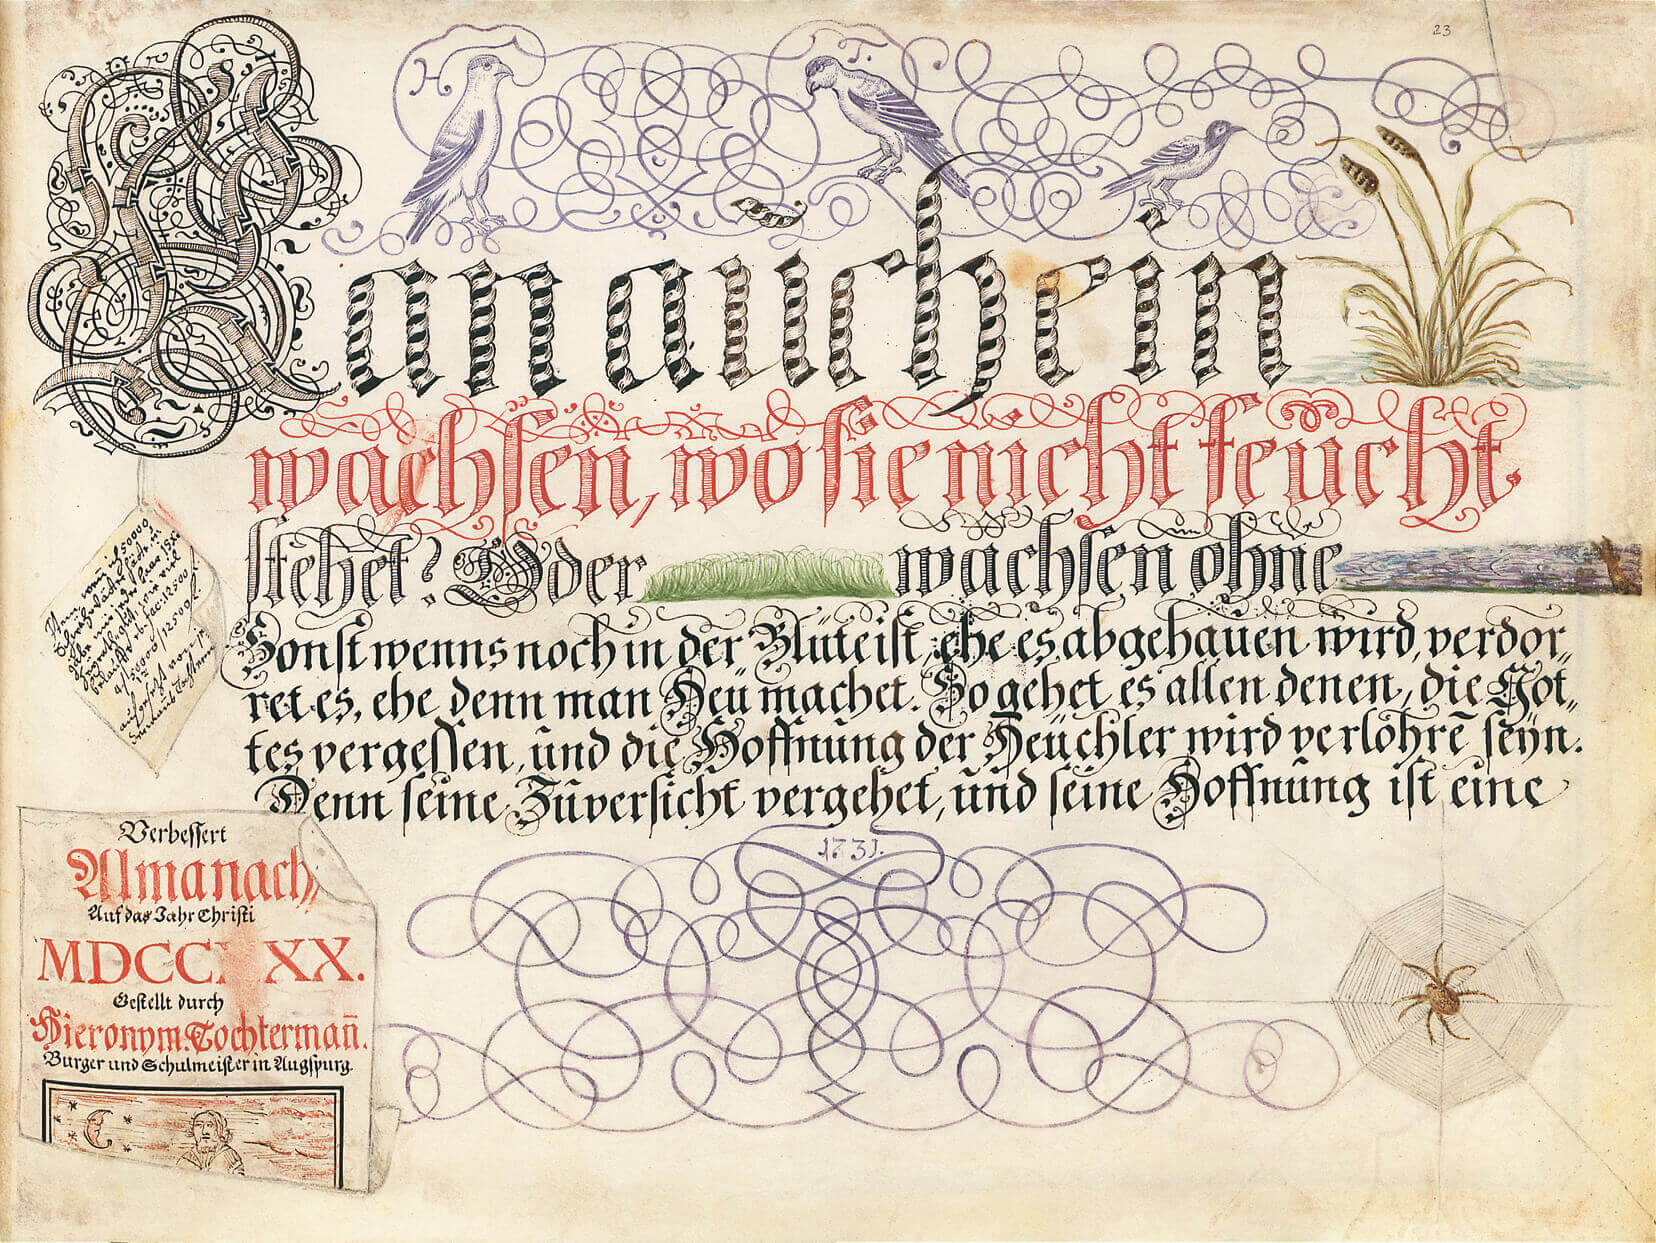 23
H T.
Kan auch ein
wachsen, wo sie nicht feücht
stehet? Oder wachsen ohne
Sonst wenns noch in der Blüte ist, ehe es abgehauen wird, verdor„
ret es, ehe denn man Heü machet. So gehet es allen denen, die Got„
tes vergessen, und die Hoffnung der Heüchler wird verlohrē seyn.
Denn seine Züversicht vergehet, und seine Hoffnung ist eine
1731.
Verbessert
Almanach,
Auf das Jahr Christi
MDCC XX.
Gestellt durch
Hieronym: Tochtermañ.
Burger und Schulmeister in Augspurg.